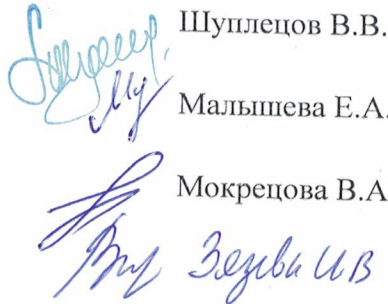 Шуплецов В.В.
Малышева Е.А.
Мокрецова В.А
Зязева И В